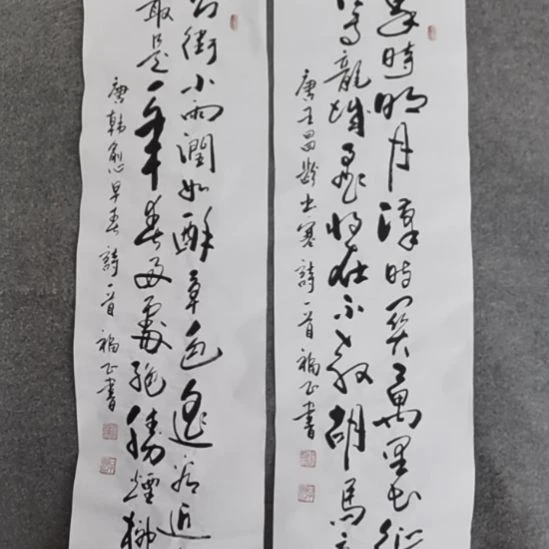 秦時明月漢時关萬里长征
龍城飛将在不教胡馬
唐王昌齡出塞詩一首 福正書
街小雨潤如酥草色遙看近
最是一年春好處絕勝煙柳
唐韓愈早春詩一首 福正書